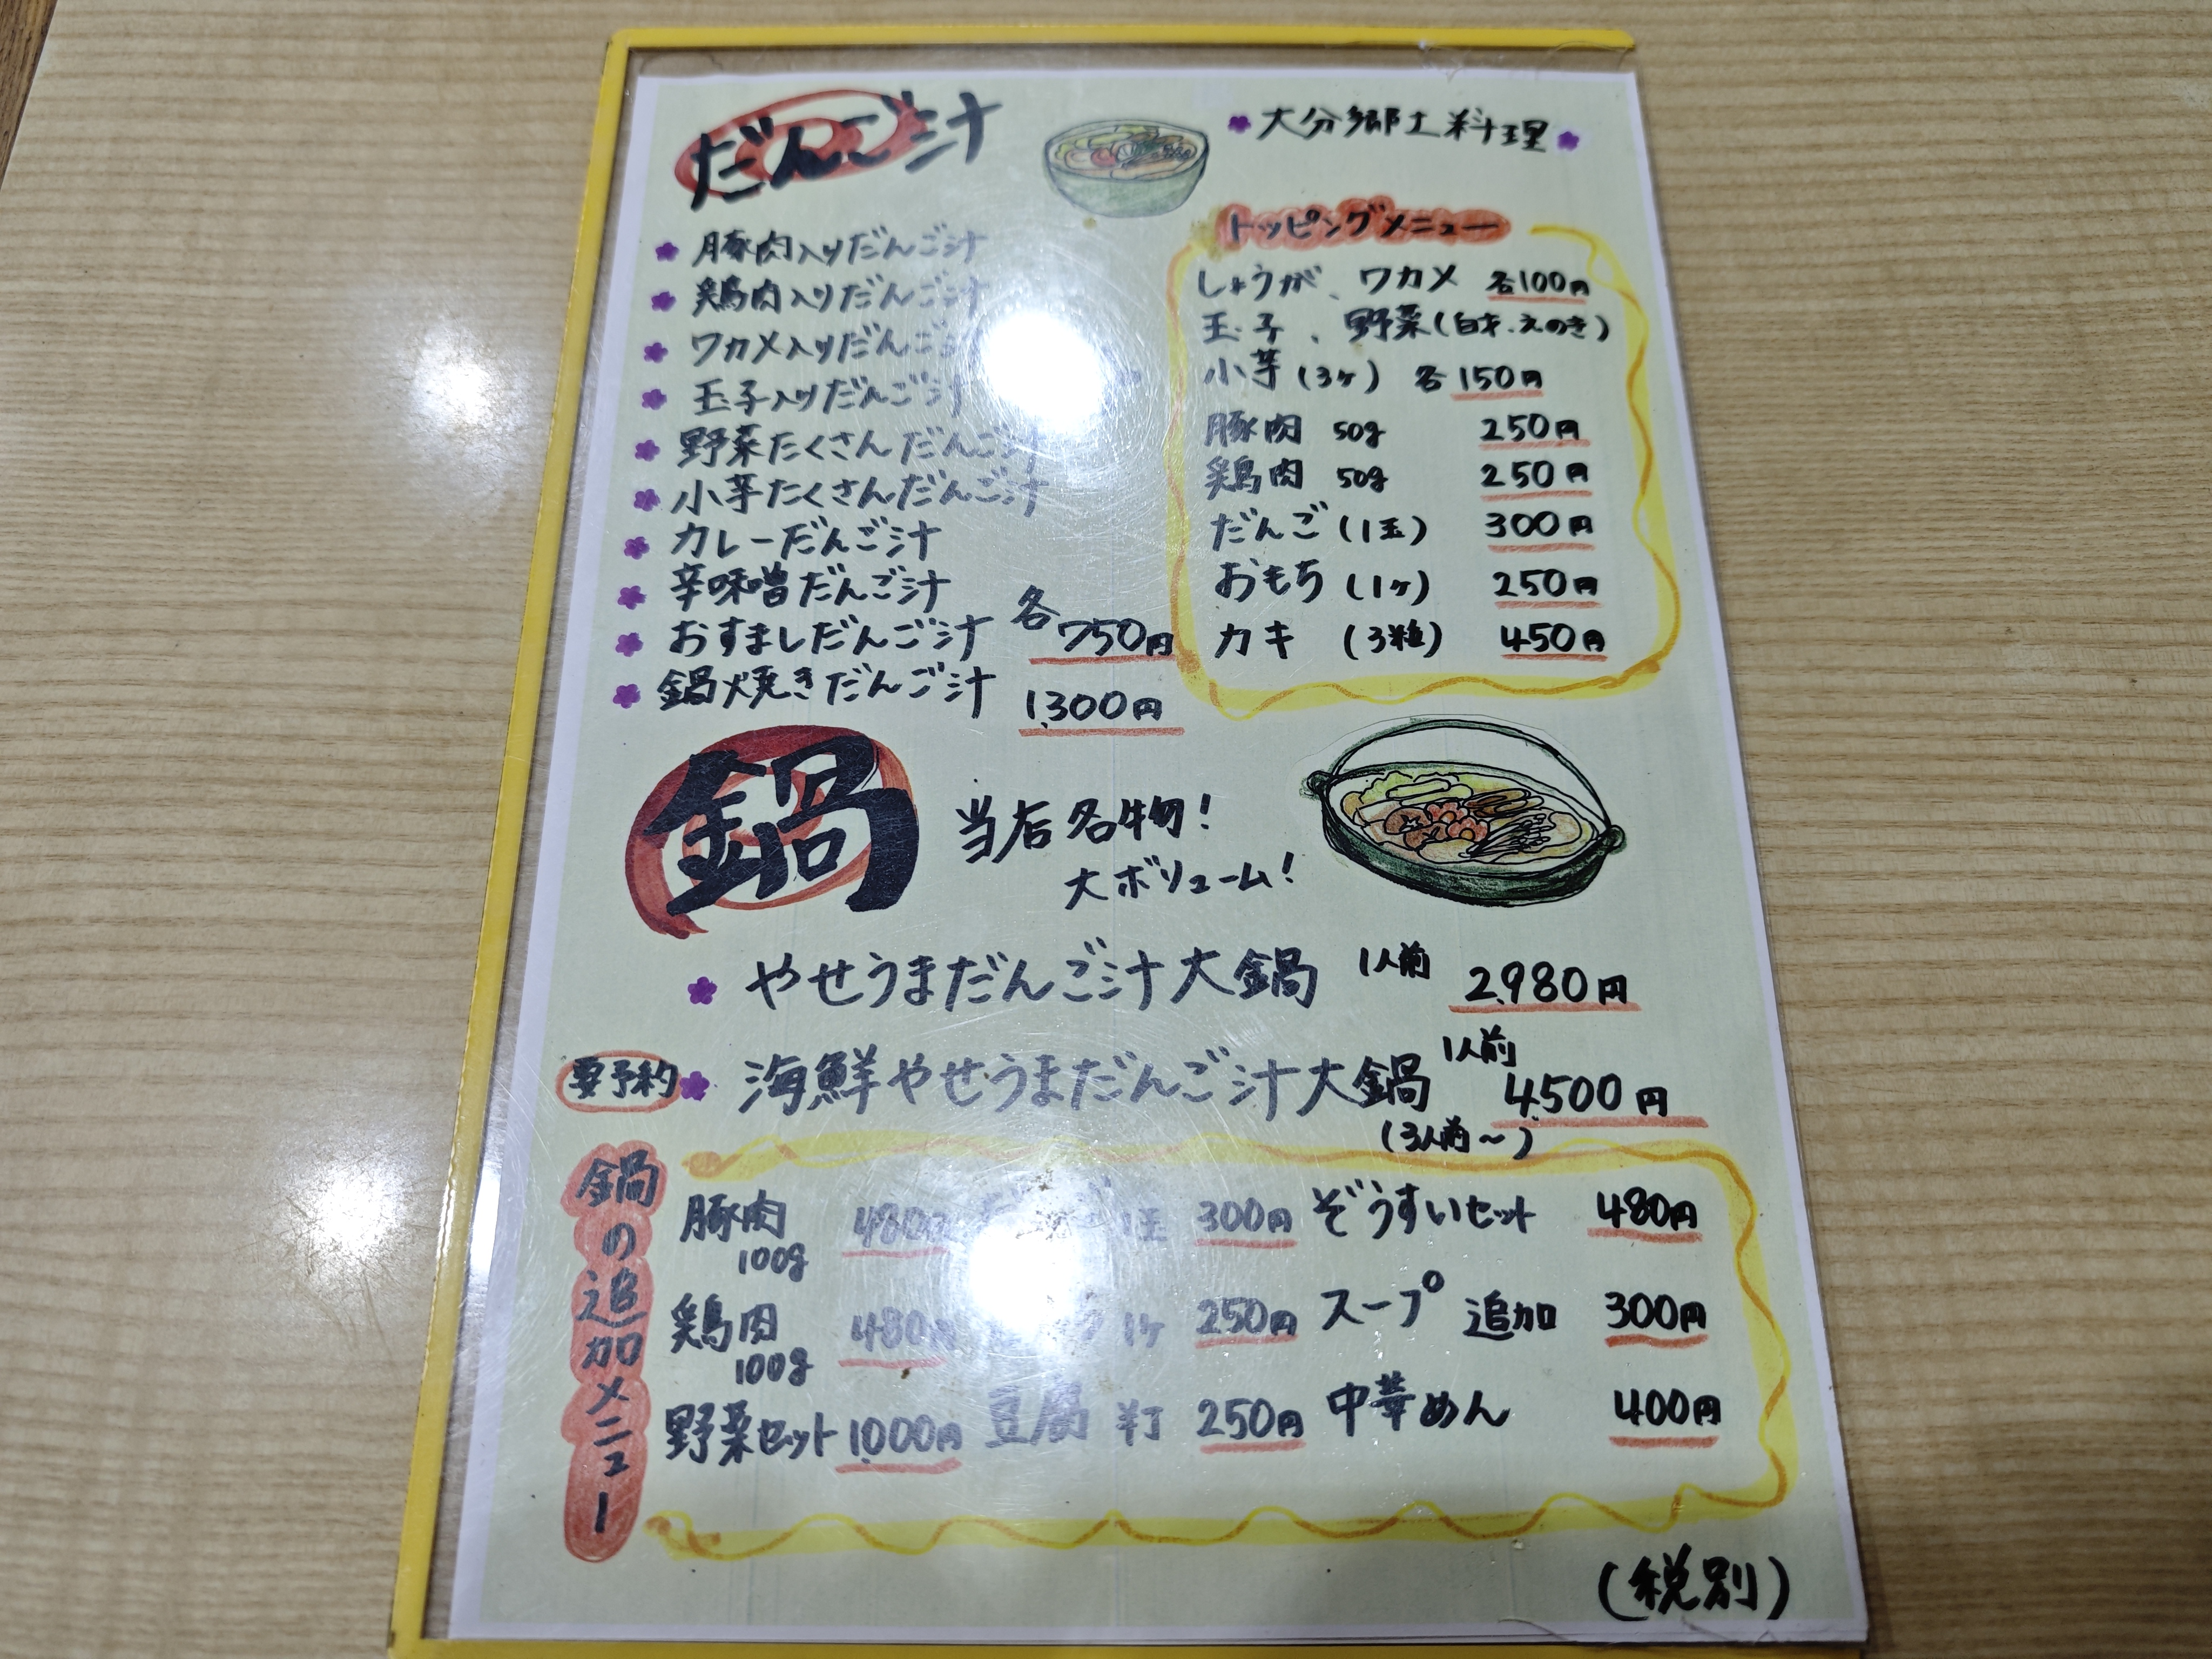 だんご汁
大分郷土料理
豚肉入りだんご汁
鶏肉入りだんご汁
ワカメ入りだんご汁
玉子入りだんご汁
野菜たくさんだんご汁
小芋たくさんだんご汁
カレーだんご汁
辛味噌だんご汁
おすましだんご汁 各750円
鍋焼きだんご汁 1,300円
トッピングメニュー
しょうが、ワカメ 各100円
玉子、野菜(白才.えのき)
小芋(3ヶ) 各150円
豚肉 50g 250円
鶏肉 50g 250円
だんご(1玉) 300円
おもち(1ヶ) 250円
カキ (3粒) 450円
鍋
当店名物!
大ボリューム!
やせうまだんご汁大鍋 1人前 2,980円
要予約 海鮮やせうまだんご汁大鍋 1人前 4,500円
(3人前~)
鍋の追加メニュー
豚肉 100g 480円
鶏肉 100g 480円
野菜セット 1,000円
1玉 300円
1ヶ 250円
豆腐 半丁 250円
ぞうすいセット 480円
スープ 追加 300円
中華めん 400円
(税別)